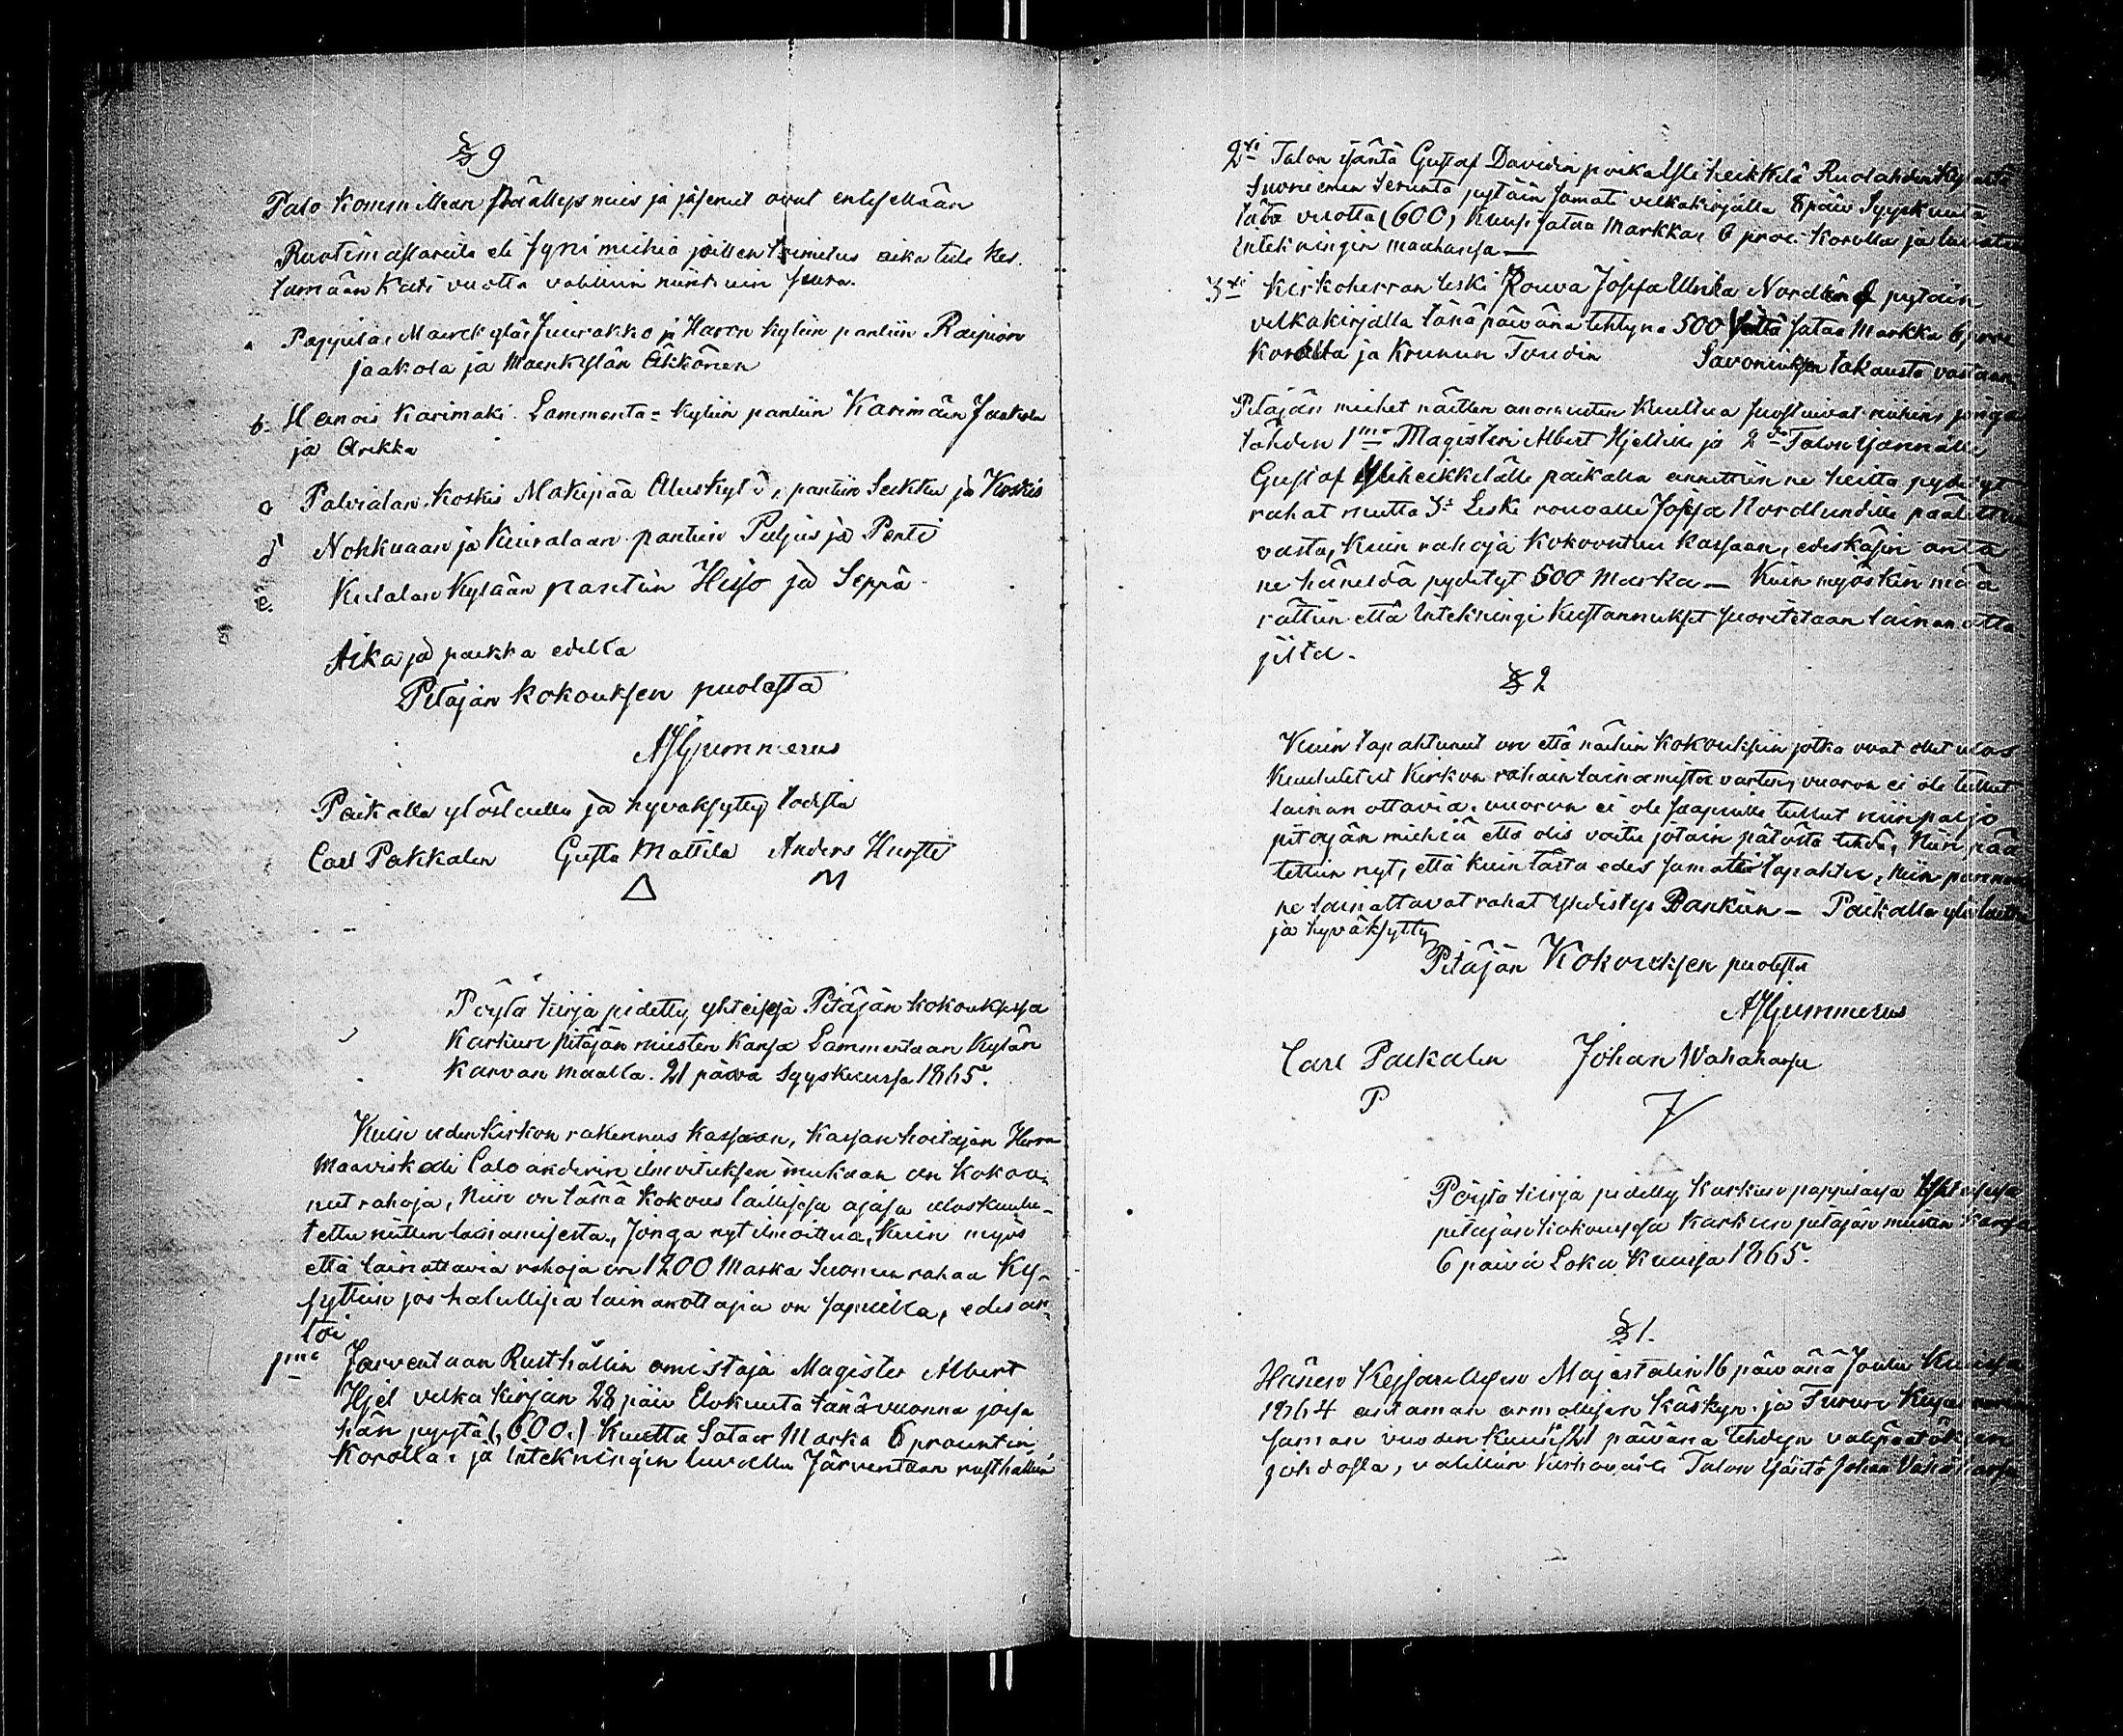 § 9
Palo Kommittean Päällysmies ja jäsenet ovat entisellään
Ruotimastareita eli synimiehiä joitten toimitus aika tule kes-
tämään Kaksi vuotta valittiin niinkuin seura.
a Pappila, Maenkylä, Juurakko ja Haron kyliin pantiin Raipion
Jaakola ja Maenkylän Äkkönen
b. Heinois Karimaki Lammenta= kyliin pantiin Karimäin Jaakola
ja Arikka
c Palvialan, Koskis Makipää Aluskylä, pantiin Seikku ja Koskis
d Nohkuaan ja Kiuralaan pantiin Puljus ja Penti
e. Kulalan Kylään pantiin Heiso ja Seppä
Aika ja paikka edellä
Pitäjän kokouksen puolesta
AJGummerus
Paikalla ylösluettu ja hyväksytty todista
Carl Pakkalen Gusta Mattila Anders Hursti
Δ M
Pöytä kirja pidetty yhteisesä Pitäjän kokouksesa
Karkun pitäjän miesten kansa Lammentaan Kylän
Karvan maalla. 21 päivä Syyskuusa 1865.
Kuin uden Kirkon rakennus kassaan, kassan hoitajan Herra
Maaviskali Caloanderin ilmoituksen mukaan on kokoo-
nut rahoja, Niin on tämä Kokous laillisesa ajasa uloskuulu-
tettu niitten lainamisesta, Jonga nyt ilmoittua, Kuin myös
että lainattavia rahoja on 1200 Marka Suomen rahaa Ky-
syttiin jos halullisia lainanottajia on sapuilla, edes an-
toi
1mo Jarventaan Rusthållin omistaja Magister Albert
Hjel velka kirjan 28 päiv Elokuuta tänä vuonna joisa
hän pyytä (600.) Kuutta Sataa Marka 6 prountin
Korolla, ja intekningin luvalla Järventaan rusthallin
2xi Talon isäntä Gustaf Davidin poika Yliheikkilä Ruolahden Kylästä
Suoniemen Seurasta pytäin samati velkakirjalla 8 päiv Syyskuuta
tätä vuotta (600) Kuusi sataa Markkaa 6 proc: Korolla ja luvata
Intekningin maahansa —
3xi Kirkoherran leski Rouva Josefa Ulrika Nordlund pytäin
velkakirjalla tänä päivänä tehtynä 500 sata Markka 6 proc
Korolla ja Krunun Foudin Savoniuksen takausta vastaan
Pitäjän miehet näitten anomuten kuultua suostuivat niihin, jonga
tähden 1mo Magisteri Albert Hjeltille ja 2do Talon Isännälle
Gustaf Yliheikkilälle paikalla annettiin ne heiltä pydetyt
rahat mutta 3o Leski rouvalle Josefa Nordlundille päätettiin
vasta, kuin rahoja kokoontuu kassaan, edeskäsin anta
ne häneldä pydetyt 500 Marka — Kuin myöskin mää
rättiin että Intekningi kustannukset suoritetaan lainan otta
jilta.
§ 2
Kuin tapahtunut on että näihin Kokouksiin jotka ovat ollet ulos
Kuulutetut Kirkon rahain lainamista varten, vuoron ei ole tullut
lainan ottavia, vuoron ei ole sapuille tullut niin paljo
pitäjän miehiä että olis voitu jotain päätöstä tehdä, Niin pää
tettiin nyt, että kuin tästä edes samate tapahtu, niin pannaan
ne lainattavat rahat Yhdistys Bankiin — Paikalla ylösluettu
ja hyväksytty
Pitäjän Kokouksen puolesta
AJGummerus
Carl Paekalen Johan Wahahonso
P
Pöytä kirja pidetty Karkun pappilasa Yhteisesä
pitäjän kokouksesa Karkun pitäjän miesten kansa
6 päivä Loka Kuusa 1865.
§ 1.
Hänen Kejsarilisen Majestatin 16 päivänä Joulu Kuusa
1864 antaman armollisen käskyn, ja Turun
saman vuoden päivänä tehdyn välipäätöksen
johdosta, valittiin Talon Isäntä Johan